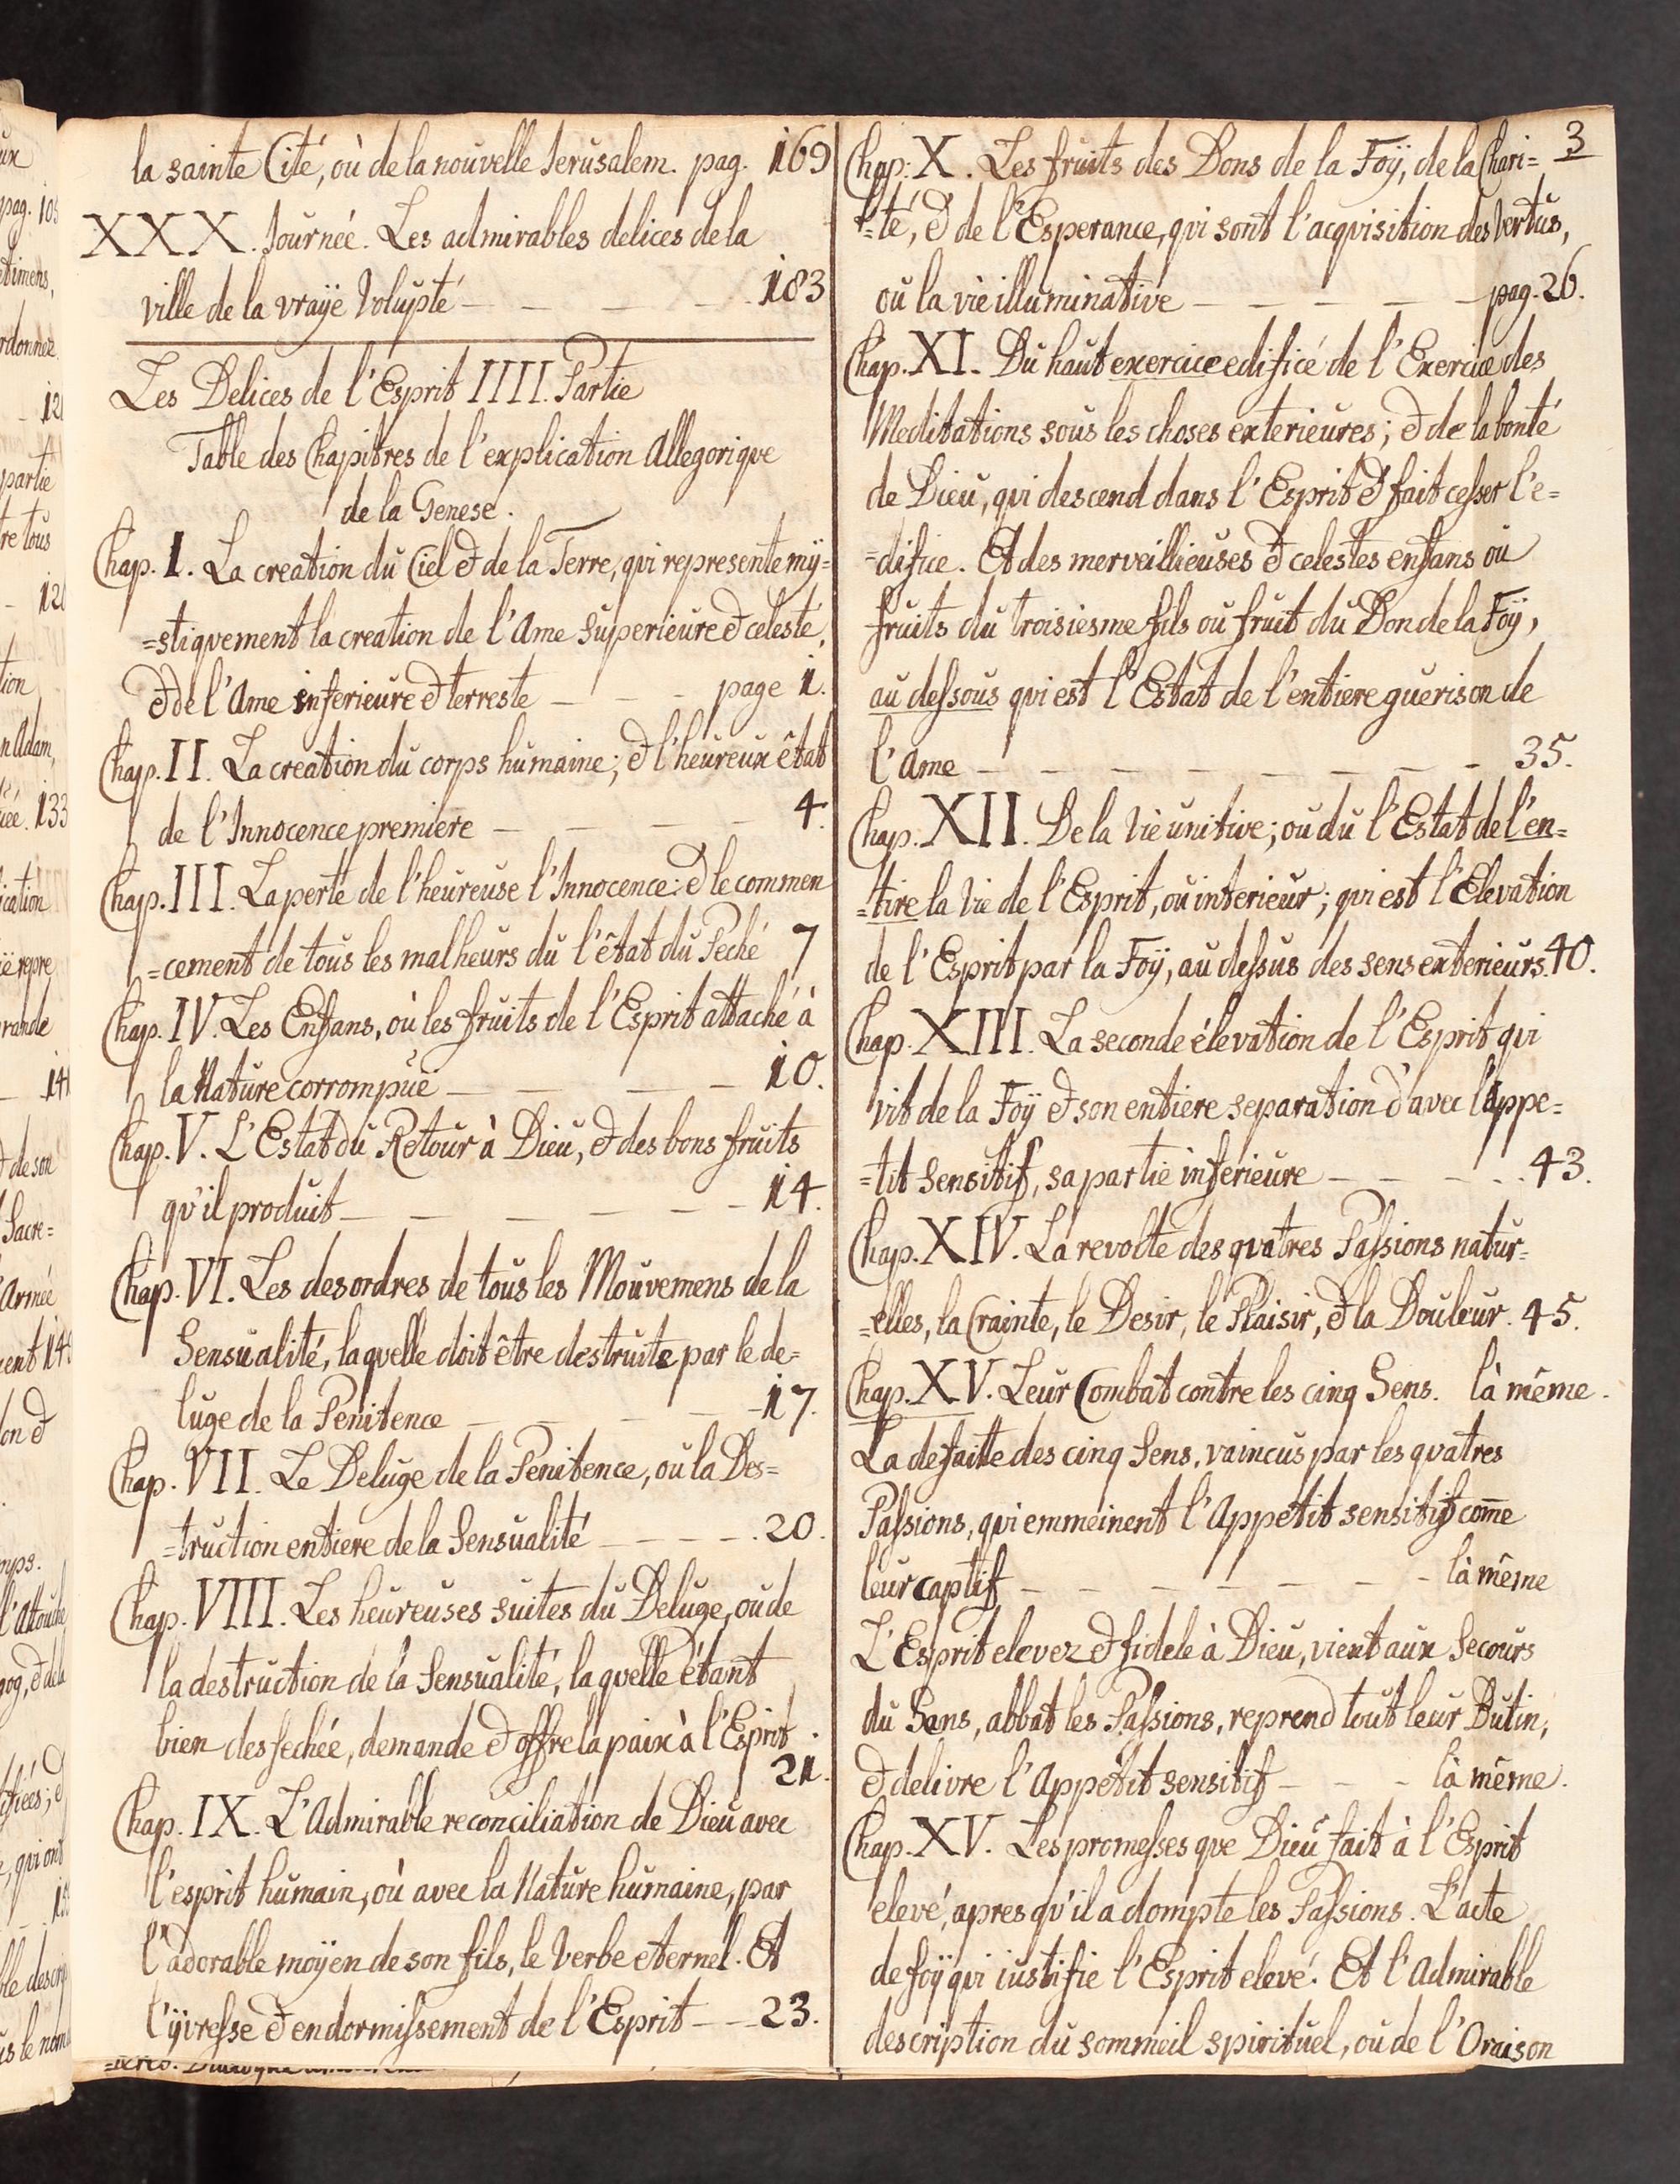 la sainte Cité, où de la nouvelle Ierusalem. pag. 169
XXX. Journée. Les admirables delices de la
ville de la vraÿe Volupté — — — — 183
Les Delices de l'Esprit IIII. Partie
Table des Chapitres de l'explication Allegorique
de la Genese.
Chap. I. La creation du Ciel & de la Terre, qui represente mÿ=
=stiquement la creation de l'Ame superieure & celeste,
& de l'Ame inferieure & terreste — — — page 1.
Chap. II. La creation du corps humaine; & l'heureux êtat
de l'Innocence premiere — — — — 4.
Chap. III. La perte de l'heureuse l'Innocence: & le commen
=cement de tous les malheurs du l'êtat du Peché 7
Chap. IV. Les Enfans, où les fruits de l'Esprit attaché à
la Nature corrompuë — — — — 10.
Chap. V. L'Estat du Retour à Dieu, & des bons fruits
qu'il produit — — — — — — 14.
Chap. VI. Les desordres de tous les Mouvemens de la
Sensualité, laquelle doit être destruite par le de=
luge de la Penitence — — — — — 17.
Chap. VII. Le Deluge de la Penitence, ou la Des=
=truction entiere de la Sensualité — — — — 20.
Chap. VIII. Les heureuses suites du Deluge, ou de
la destruction de la Sensualité, laquelle étant
bien dessechée, demande & offre la paix à l'Esprit
21.
Chap. IX. L'Admirable reconciliation de Dieu avec
l'esprit humain, où avec la Nature humaine, par
l'adorable moÿen de son fils, le Verbe eternel. Et
l'ÿvresse & endormissement de l'Esprit — — 23.
3
Chap. X. Les fruits des Dons de la Foÿ, de la Chari=
=té, & de l'Esperance, qui sont l'acquisition des Vertus,
ou la vie illuminative — — — — — pag. 26.
Chap. XI. Du haut exercice edificé de l'Exercice des
Meditations sous les choses exterieures; & de la bonté
de Dieu, qui descend dans l'Esprit & fait cesser l'e=
=difice. Et des merveillieuses & celestes enfans ou
fruits du troisiesme fils ou fruit du Don de la Foÿ,
au dessous qui est l'Estat de l'entiere guerison de
l'Ame — — — — — — — — 35.
Chap. XII. De la Vie unitive; ou du l'Estat de l'en=
=tire la Vie de l'Esprit, ou interieur; qui est l'Elevation
de l'Esprit par la Foÿ, au dessus des sens exterieurs. 40.
Chap. XIII. La seconde élevation de l'Esprit qui
vit de la Foÿ & son entiere separation d'avec l'Appe=
=tit Sensitif, sa partie inferieure — — — — 43.
Chap. XIV. La revolte des quatres Passions natur=
=elles, la Crainte, le Desir, le Plaisir, & la Douleur. 45.
Chap. XV. Leur Combat contre les cinq Sens. là même.
La defaitte des cinq Sens, vaincus par les quatres
Passions, qui emmeinent l'Appetit sensitif com̄e
leur captif — — — — — — — là même
L'Esprit elevez & fidele à Dieu, vient aux Secours
du Sens, abbat les Passions, reprend tout leur Butin,
& delivre l'Appetit sensitif — — — là même.
Chap. XV. Les promesses que Dieu fait à l'Esprit
elevé, apres qu'il a dompte les Passions. L'acte
de foÿ qui iustifie l'Esprit elevé. Et l'Admirable
description du sommeil spirituel, ou de l'Oraison